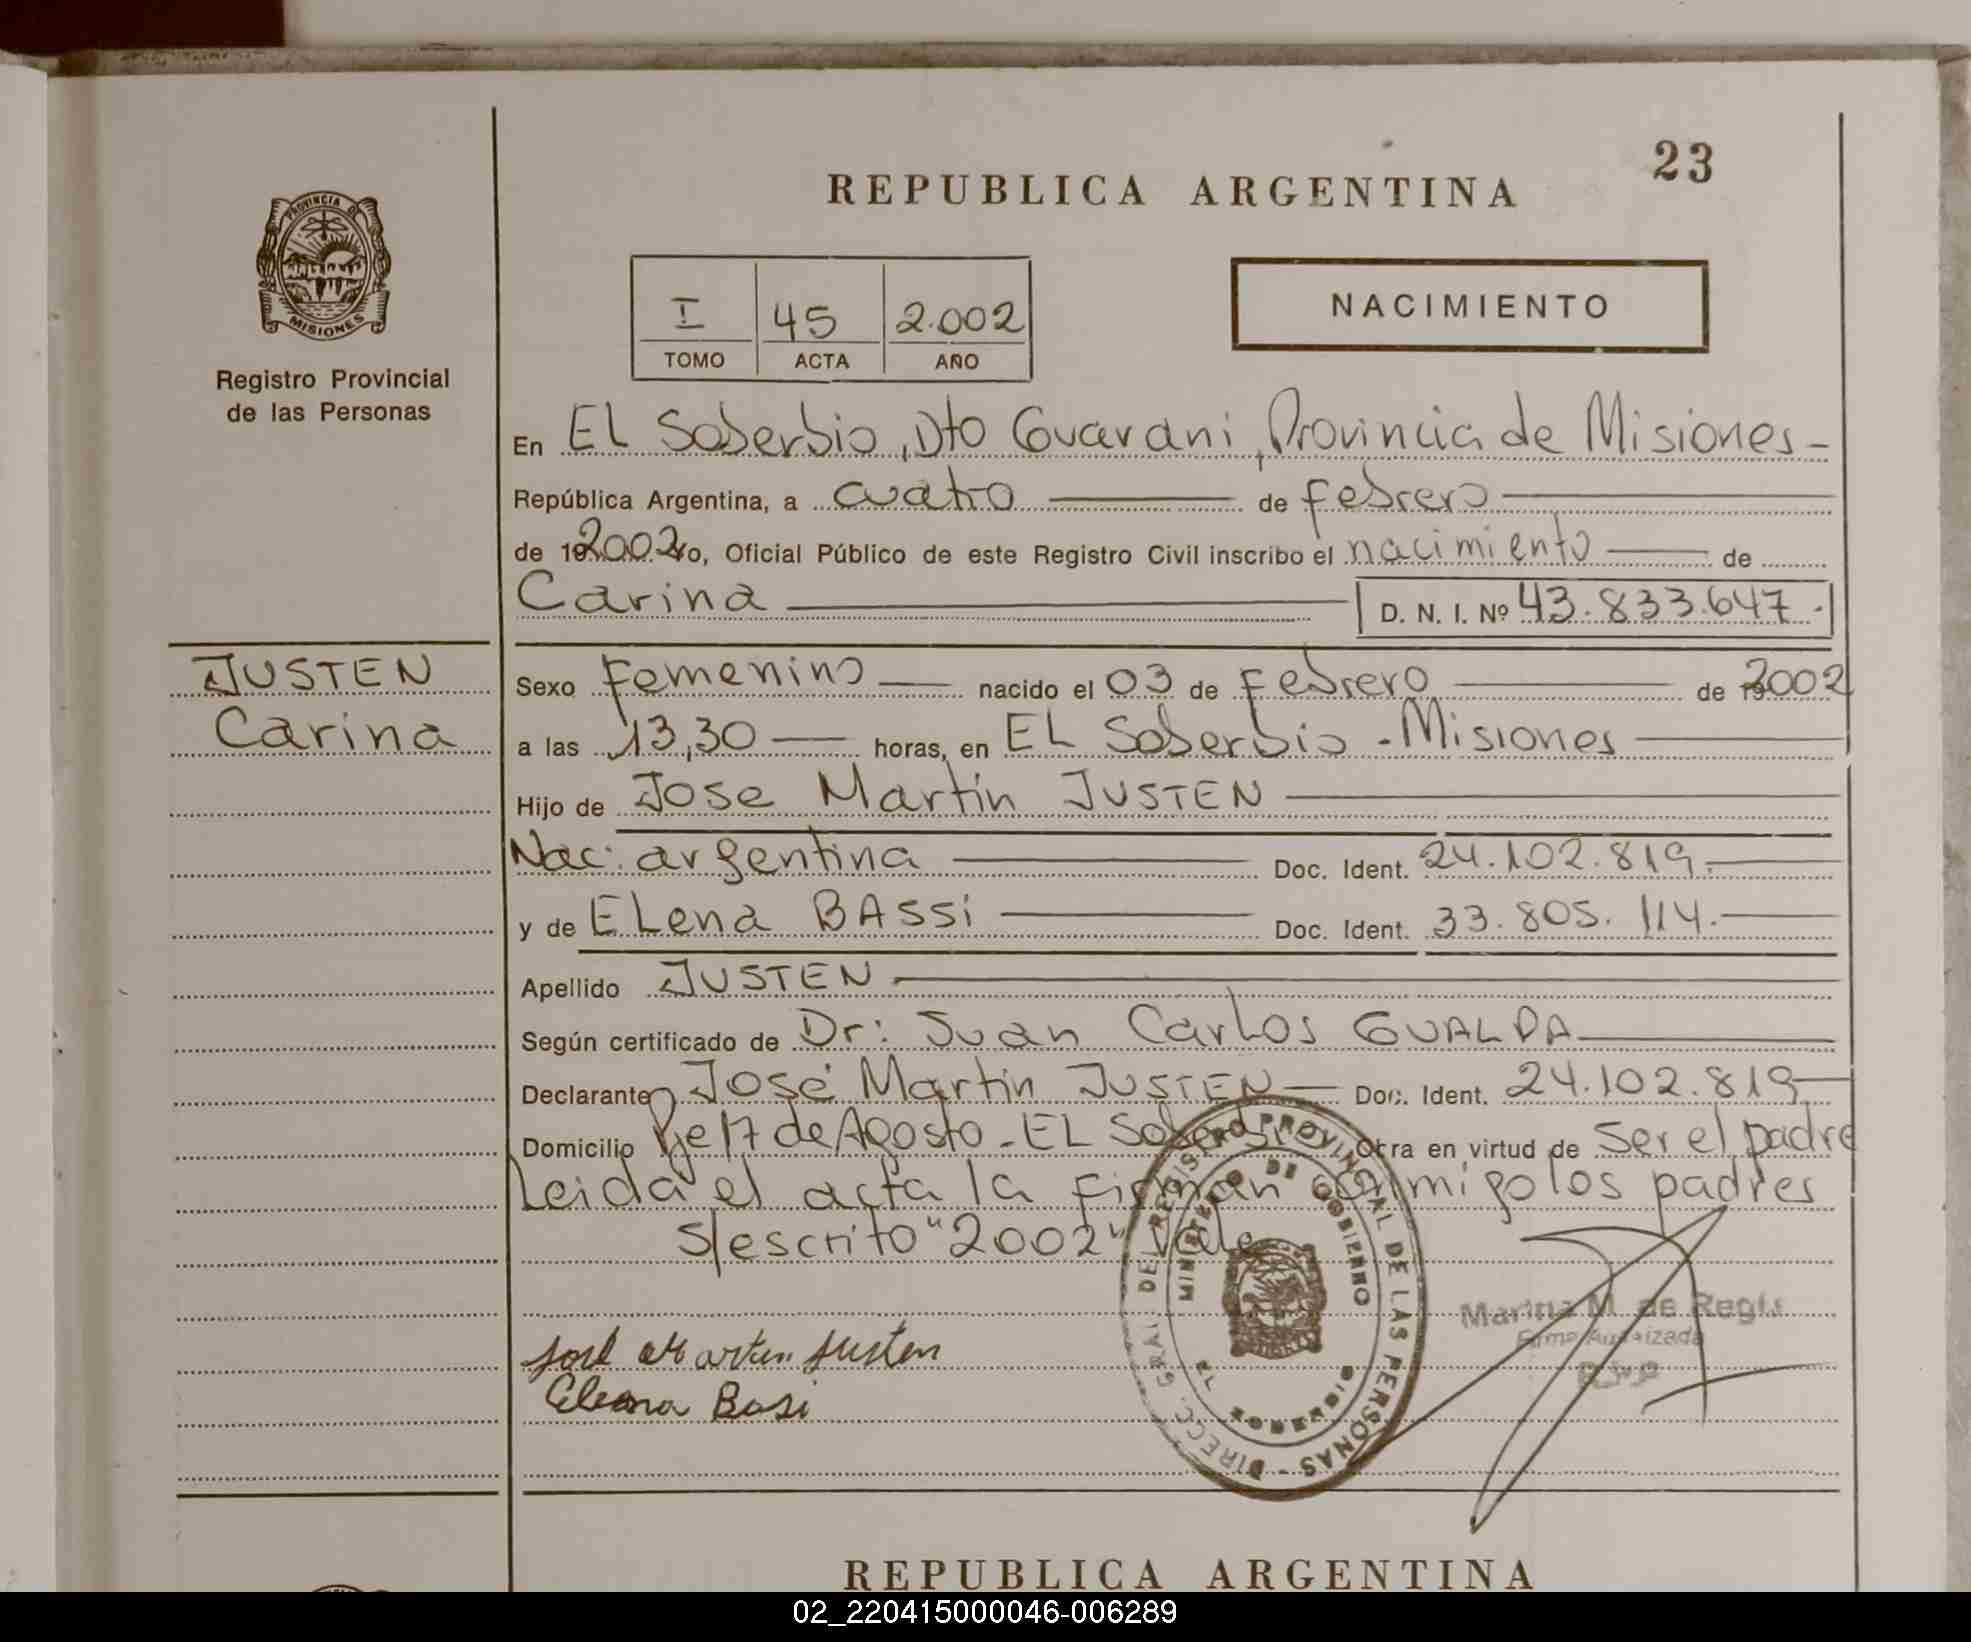 23
REPUBLICA ARGENTINA
PROVINCIA DE
MISIONES
Registro Provincial
de las Personas
I 45 2.002
TOMO ACTA AÑO
NACIMIENTO
En EL Soberbio, Dto Guarani, Provincia de Misiones-
República Argentina, a cuatro de febrero
de 2002 Yo, Oficial Público de este Registro Civil inscribo el nacimiento de
Carina D. N. I. Nº 43.833.647.-
JUSTEN
Carina
Sexo Femenino nacido el 03 de Febrero de 2002
a las 13,30 horas, en EL Soberbio - Misiones
Hijo de Jose Martín JUSTEN
Nac: argentina Doc. Ident. 24.102.819.
y de ELena BASSi Doc. Ident. 33.805.114.
Apellido JUSTEN
Según certificado de Dr: Juan Carlos GUALDA
Declarante José Martín JUSTEN Doc. Ident. 24.102.819
Domicilio 17 de Agosto - EL Soberbio Otra en virtud de Ser el padre
Leida el acta la firman conmigo los padres
S/escrito "2002" Vale
DIRECC. GRAL. DEL REGISTRO PROVINCIAL DE LAS PERSONAS -
MINISTERIO DE GOBIERNO
EL SOBERBIO
Marina M. de
Firma Autorizada
José Martin Justen
Elena Basi
REPUBLICA ARGENTINA
02_220415000046-006289